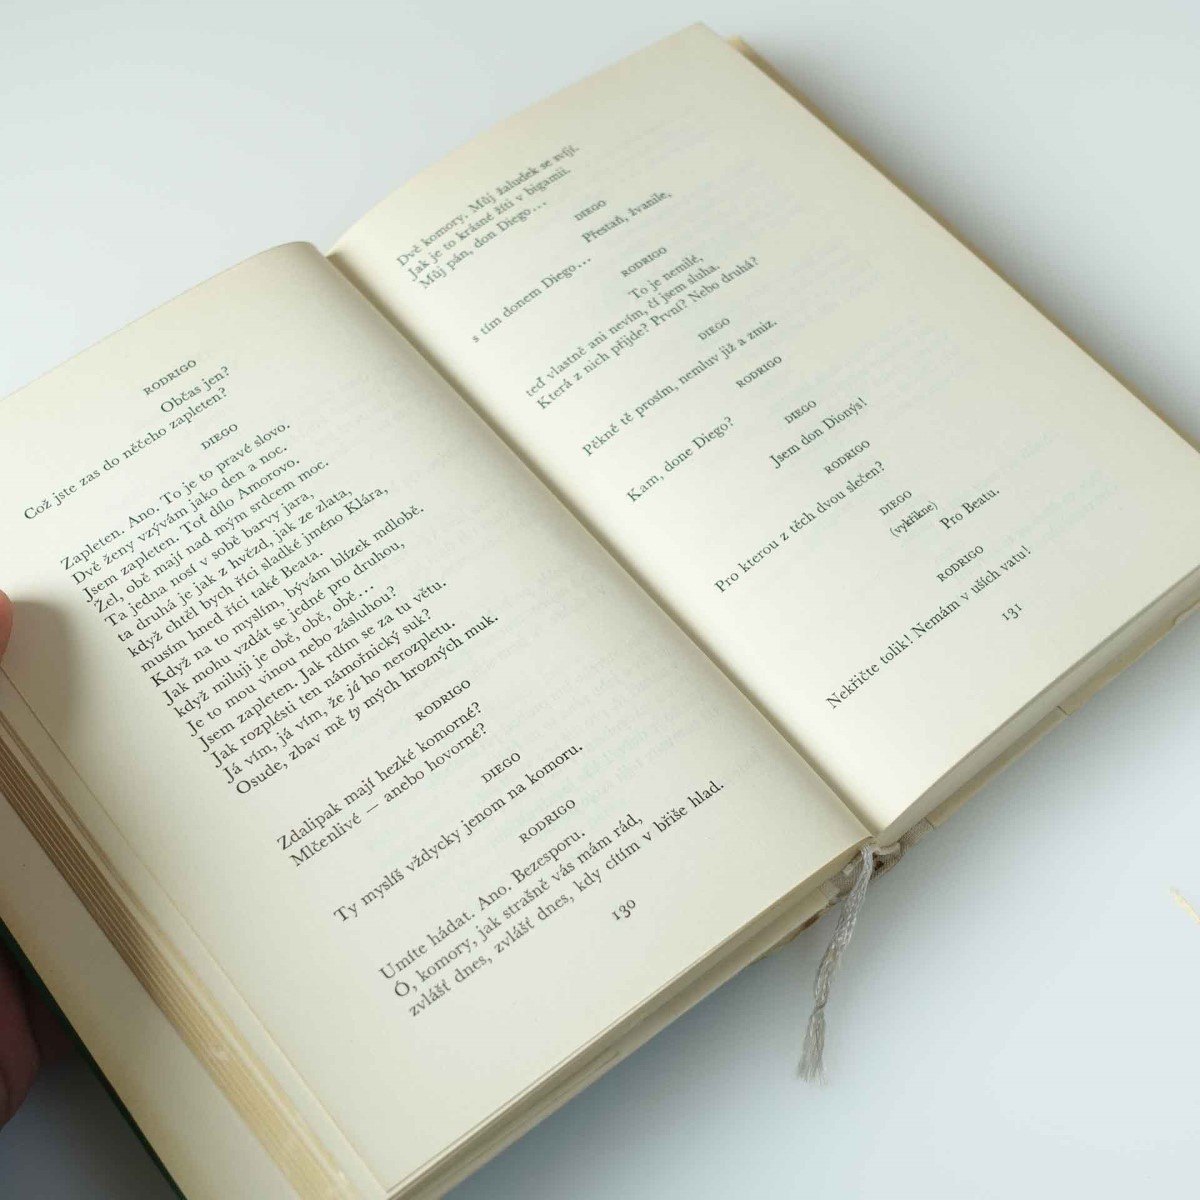 RODRIGO
Občas jen?
Což jste zas do něčeho zapleten?
DIEGO
Zapleten. Ano. To je to pravé slovo.
Dvě ženy vzývám jako den a noc.
Jsem zapleten. Toť dílo Amorovo.
Žel, obě mají nad mým srdcem moc.
Ta jedna nosí v sobě barvy jara,
ta druhá je jak z hvězd, jak ze zlata,
když chtěl bych říci sladké jméno Klára,
musím hned říci také Beata.
Když na to myslím, bývám blízek mdlobě.
Jak mohu vzdát se jedné pro druhou,
když miluji je obě, obě, obě...
Je to mou vinou nebo zásluhou?
Jsem zapleten. Jak rdím se za tu větu.
Jak rozplésti ten námořnický suk?
Já vím, já vím, že já ho nerozpletu.
Osude, zbav mně ty mých hrozných muk.
RODRIGO
Zdalipak mají hezké komorné?
Mlčenlivé — anebo hovorné?
DIEGO
Ty myslíš vždycky jenom na komoru.
RODRIGO
Umíte hádat. Ano. Bezesporu.
Ó, komory, jak strašně vás mám rád,
zvlášť dnes, zvlášť dnes, kdy cítím v břiše hlad.
130
Dvě komory. Můj žaludek se svíjí.
Jak je to krásné žíti v bigamii.
Můj pán, don Diego...
DIEGO
Přestaň, žvanile,
s tím donem Diego...
RODRIGO
To je nemilé,
teď vlastně ani nevím, čí jsem sluha.
Která z nich přijde? První? Nebo druhá?
DIEGO
Pěkně tě prosím, nemluv již a zmiz.
RODRIGO
Kam, done Diego?
DIEGO
Jsem don Dionýs!
RODRIGO
Pro kterou z těch dvou slečen?
DIEGO
(vykřikne)
Pro Beatu.
RODRIGO
Nekřičte tolik! Nemám v uších vatu!
131